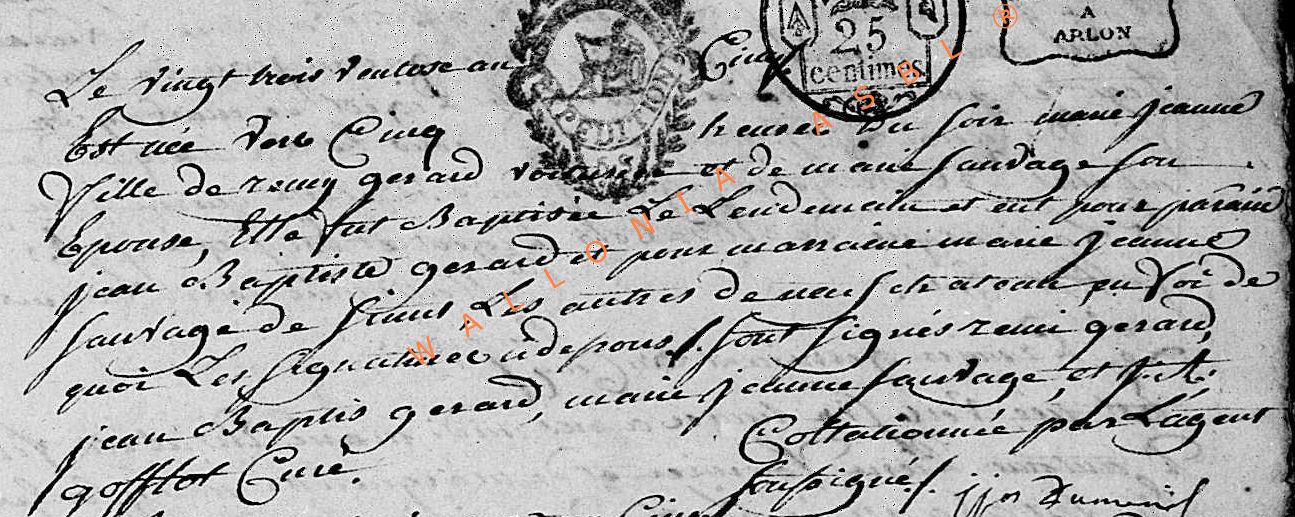 25
centimes
A
ARLON
PETITION
Le vingt trois ventose an Cinq
Est née vers Cinq heures Du soir marie jeanne
fille de remy gerard voiturier et de marie sauvage son
Epouse, Elle fut Baptisée Le Lendemain et eut pour parain
jean Baptiste gerard et pour marraine marie jeanne
sauvage de Les autres de neufchateau en foi de
quoi Les signatures sont signés remi gerard,
jean Baptis gerard, marie jeanne sauvage, et
gofflot Curé.
Collationnée par L'agent
soussigné
WALLONIA ASBL ®